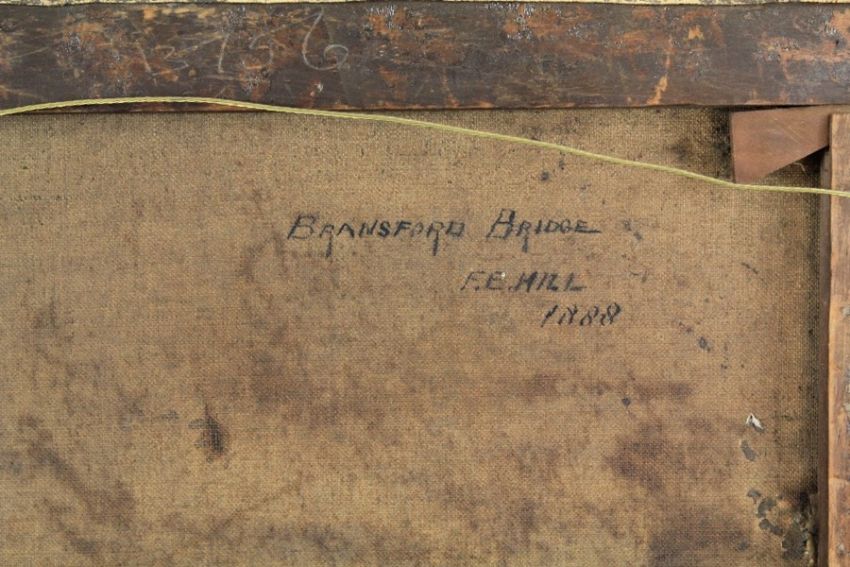 BRANSFORD BRIDGE
F.E. HILL
1888